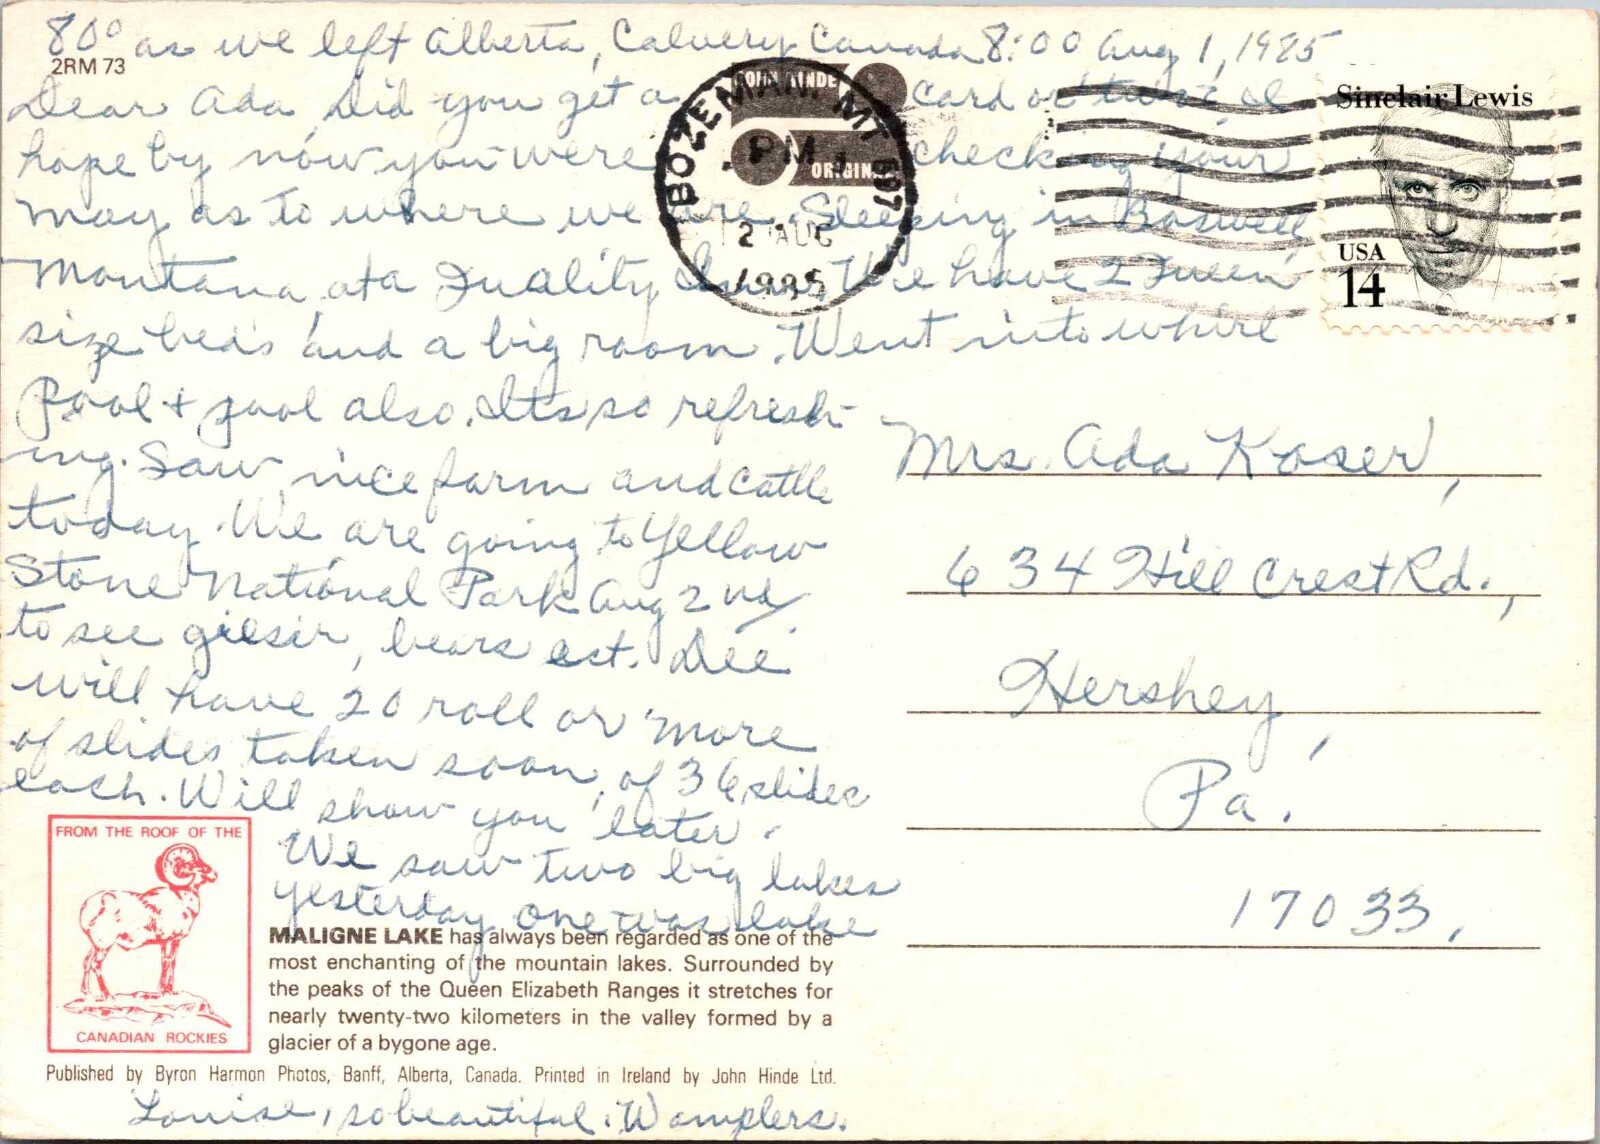 80° as we left Alberta, Calvery Canada 8:00 Aug 1, 1985
2RM 73
Dear Ada, Did you get a card or two? I
hope by now you were checking your
may as to where we are. Sleeping in Boswell
Montana, at a Quality Inn. We have 2 Queen
size beds and a big room. Went into whirl
pool + pool also. Its so refresh-
ing. Saw nice farm and cattle
today. We are going to Yellow
Stone National Park Aug 2nd
to see gieser, bears ect. Dee
will have 20 roll or more
of slides taken soon, of 36 slides
each. Will show you later.
We saw two big lakes
yesterday one was lake
Louise, so beautiful. Wamplers.
JOHN HINDE
ORIGINAL
BOZEMAN, MT 597
PM
2 AUG
1985
Sinclair Lewis
USA
14
Mrs. Ada Koser,
634 Hill Crest Rd.,
Hershey,
Pa.
17033.
FROM THE ROOF OF THE
CANADIAN ROCKIES
MALIGNE LAKE has always been regarded as one of the
most enchanting of the mountain lakes. Surrounded by
the peaks of the Queen Elizabeth Ranges it stretches for
nearly twenty-two kilometers in the valley formed by a
glacier of a bygone age.
Published by Byron Harmon Photos, Banff, Alberta, Canada. Printed in Ireland by John Hinde Ltd.